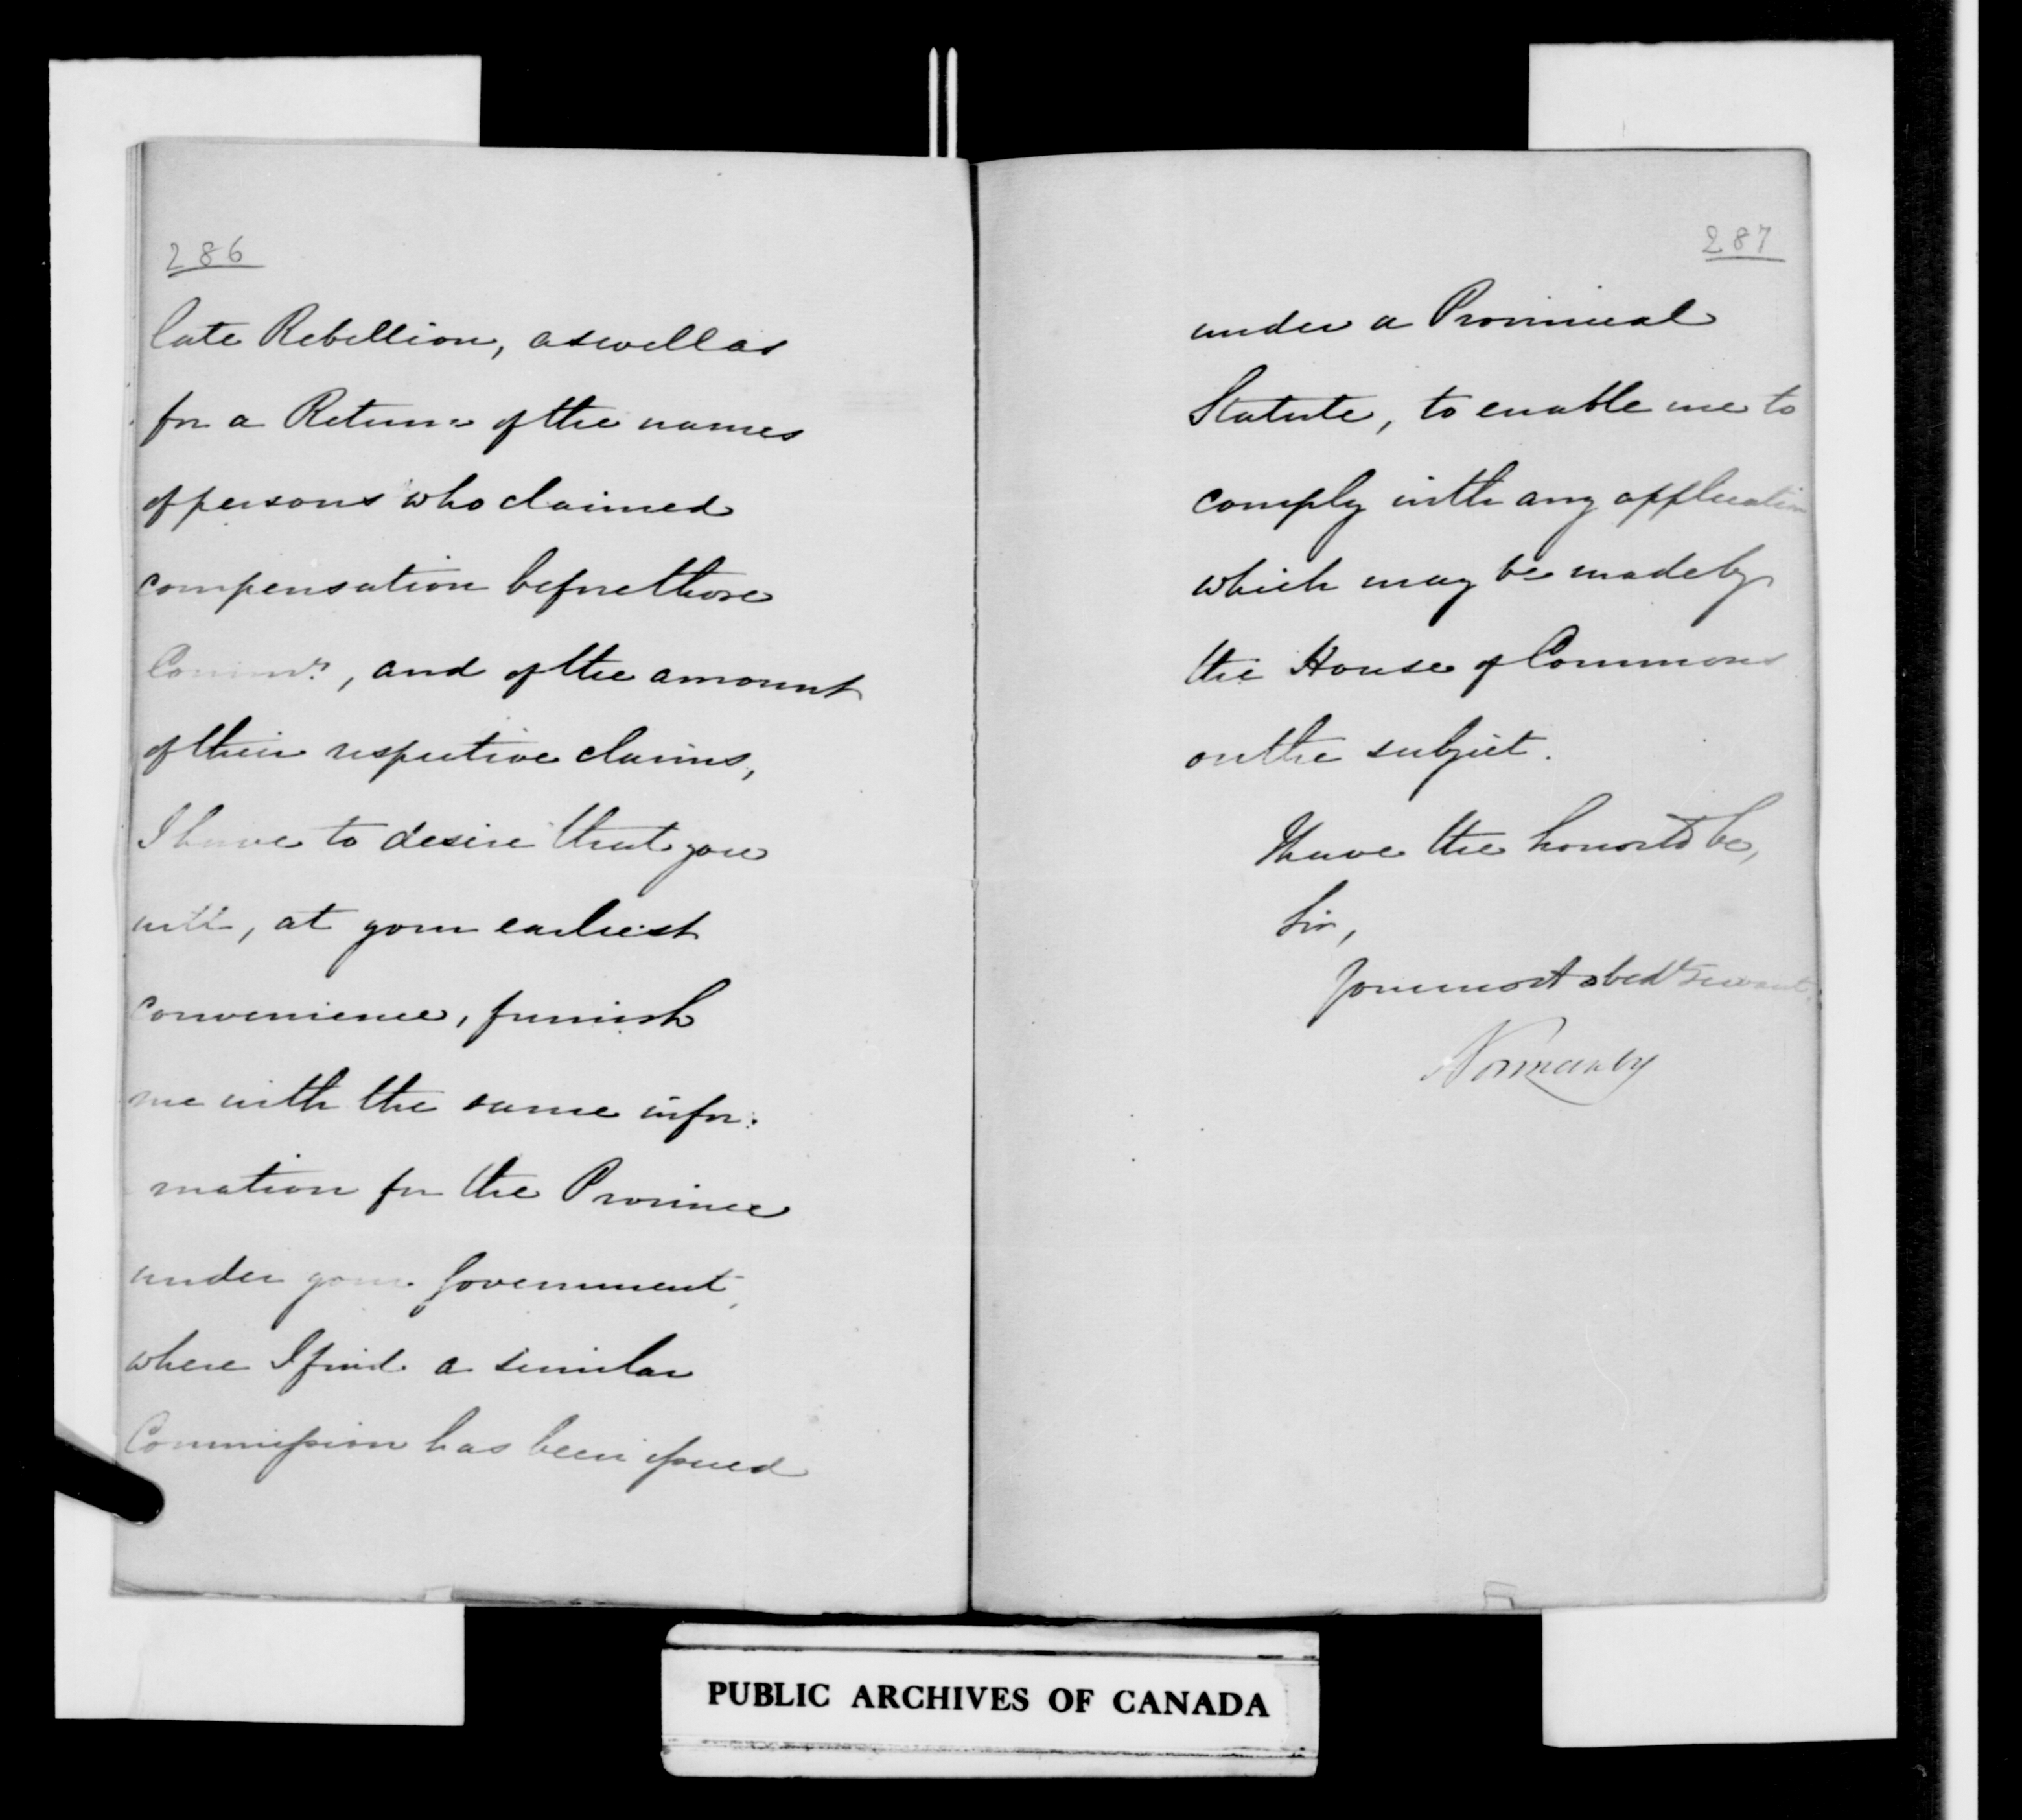 286
late Rebellion, as well as
for a Return = of the names
of persons who claimed
compensation before those
Comm.rs, and of the amount
of their respective claims,
I have to desire that you
will, at your earliest
convenience, furnish
me with the same infor:
mation for the Province
under your Government,
where I find a similar
Commission has been issued
287
under a Provincial
Statute, to enable me to
comply with any application
which may be made by
the House of Commons
on the subject.
I have the honor to be,
Sir,
Your most obedt servant,
Normanby
PUBLIC ARCHIVES OF CANADA